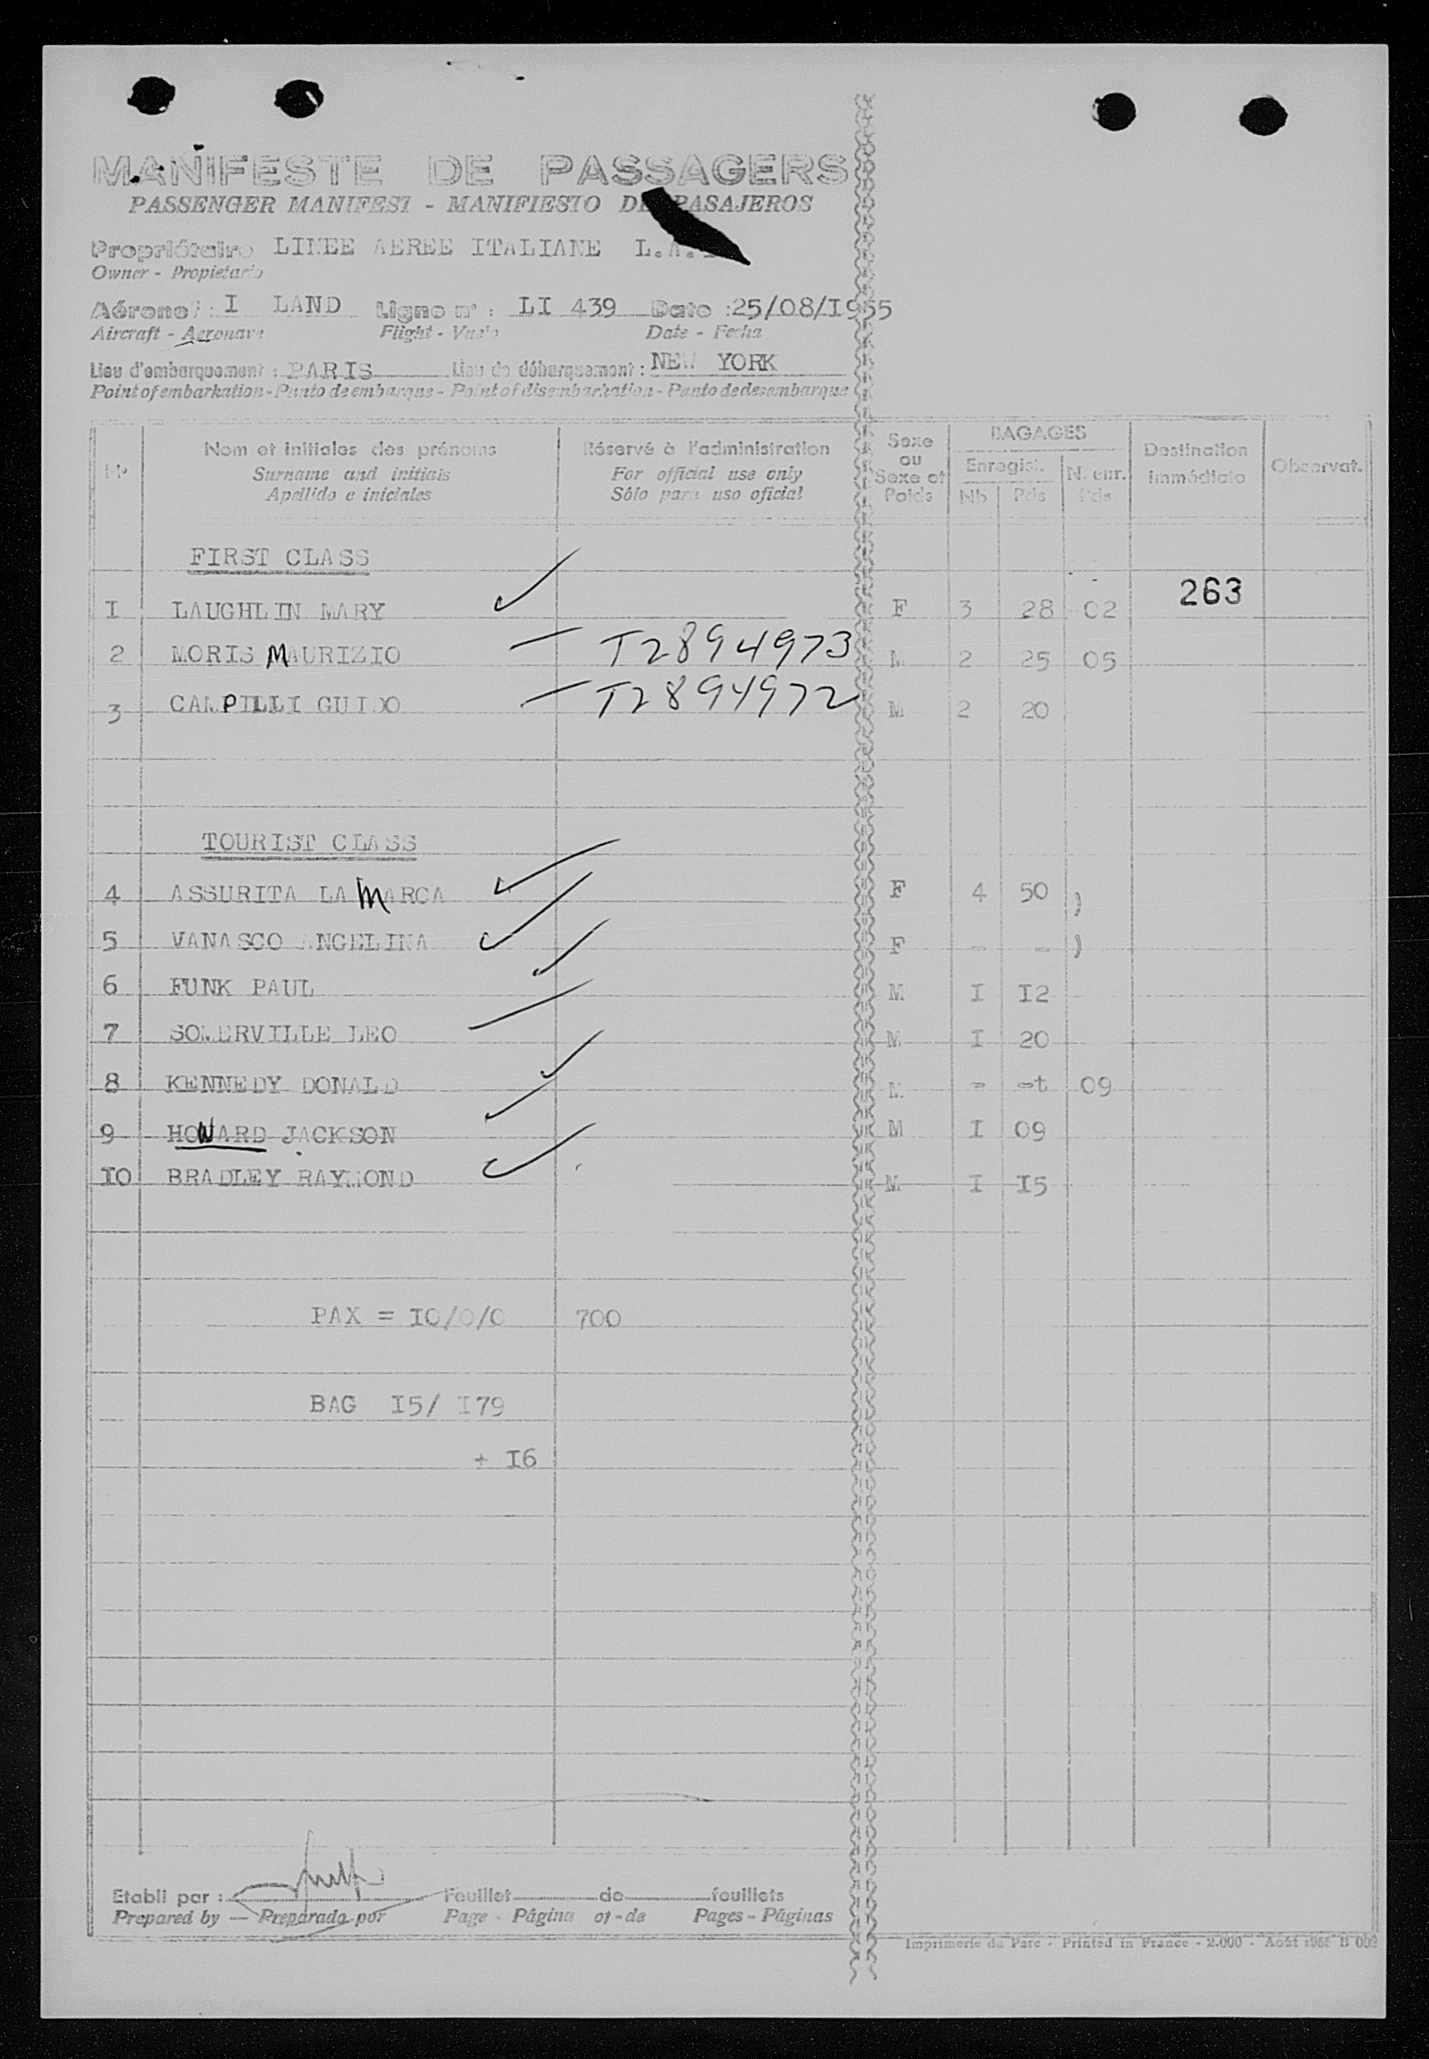 MANIFESTE DE PASSAGERS
PASSENGER MANIFEST - MANIFIESTO DE PASAJEROS
Propriétaire LINEE AEREE ITALIANE L.A.
Owner - Propietario
Aéronef : I LAND Ligne n° : LI 439 Date : 25/08/I955
Aircraft - Aeronave Flight - Vuelo Date - Fecha
Lieu d'embarquement : PARIS Lieu de débarquement : NEW YORK
Point of embarkation - Punto de embarque - Point of disembarkation - Punto de desembarque
N° Nom et initiales des prénoms Réservé à l'administration Sexe ou Sexe et Poids BAGAGES Destination immédiate Observat.
Surname and initials For official use only Enregist. N. enr.
Apellido e iniciales Sólo para uso oficial Nb Pds Pds
FIRST CLASS
263
I LAUGHLIN MARY F 3 28 02
2 MORIS MAURIZIO T2894973 M 2 25 05
3 CAMPILLI GUIDO T2894972 M 2 20
TOURIST CLASS
4 ASSURITA LA MARCA F 4 50 )
5 VANASCO ANGELINA F - - )
6 FUNK PAUL M I I2
7 SOMERVILLE LEO M I 20
8 KENNEDY DONALD M - -t 09
9 HOWARD JACKSON M I 09
IO BRADLEY RAYMOND M I I5
PAX = IO/0/0 700
BAG I5/ I79
+ I6
Etabli par : Feuillet de feuillets
Prepared by — Preparado por Page - Página of - de Pages - Páginas
Imprimerie du Parc - Printed in France - 2.000 - Août 1955 B